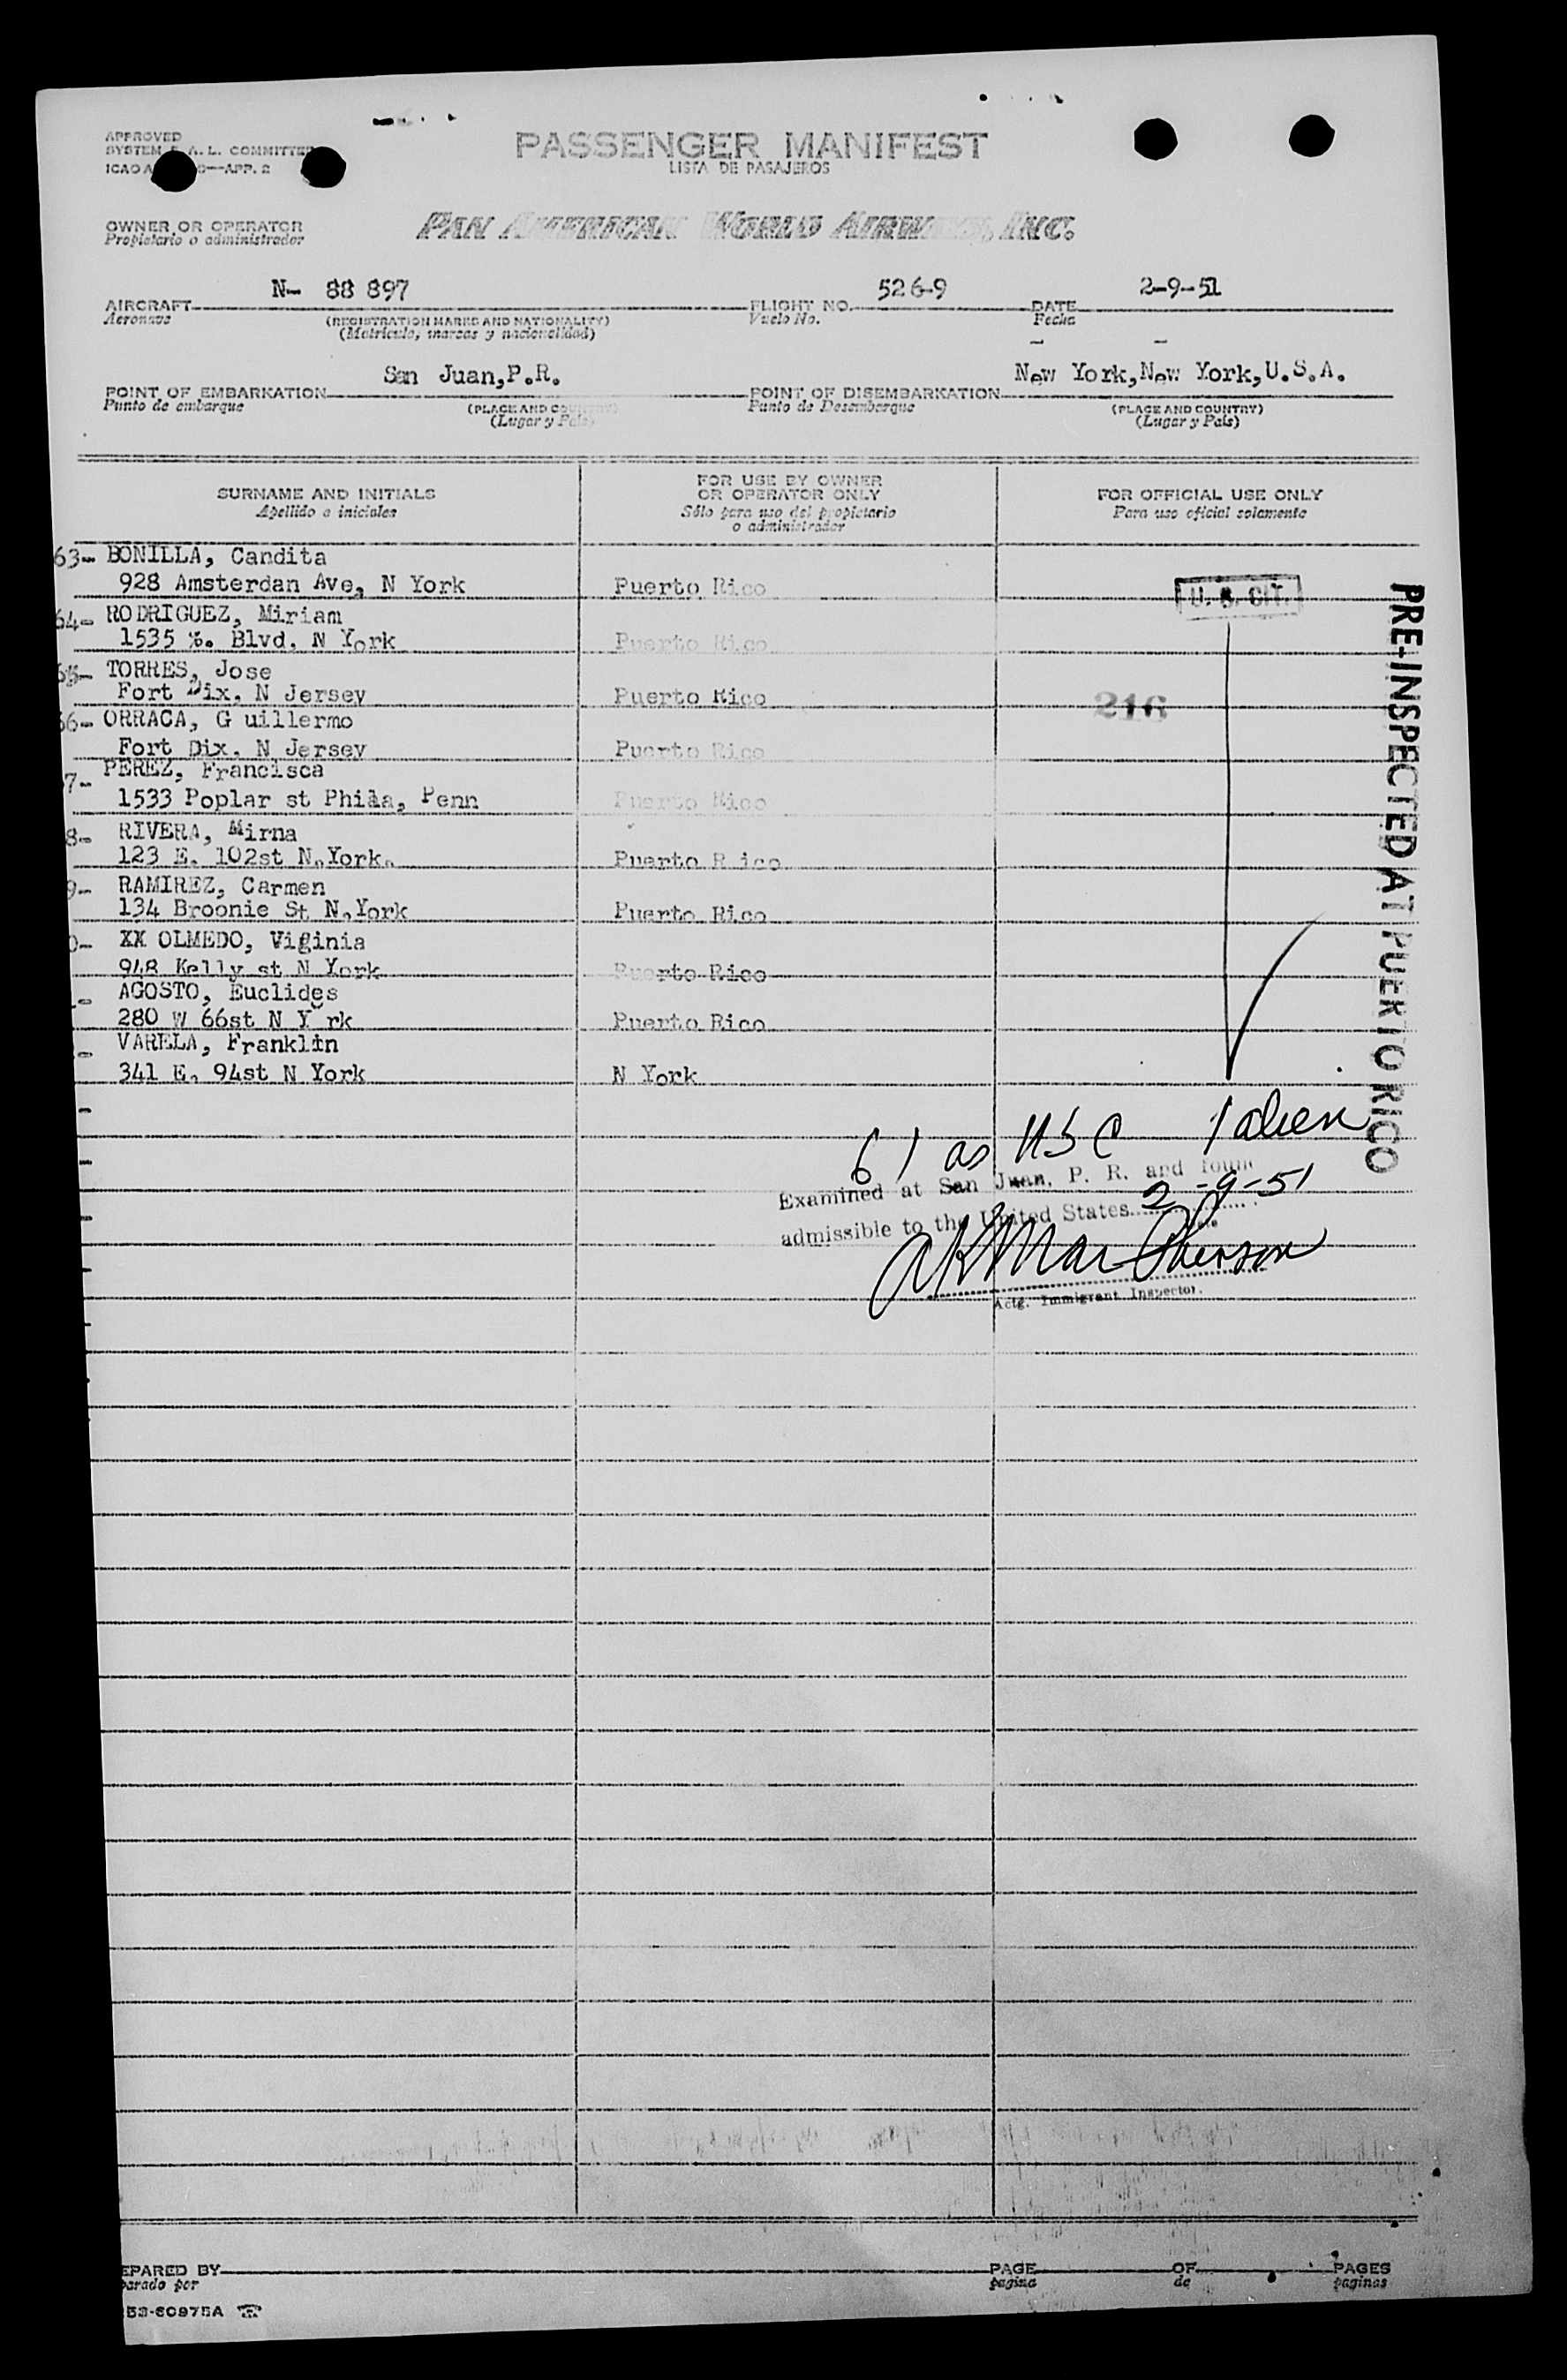 APPROVED
SYSTEM F. A. L. COMMITTEE
ICAO A 9—APP. 2
PASSENGER MANIFEST
LISTA DE PASAJEROS
OWNER OR OPERATOR
Propietario o administrador
PAN AMERICAN WORLD AIRWAYS, INC.
AIRCRAFT N- 88 897 FLIGHT NO. 526-9 DATE 2-9-51
Aeronave (REGISTRATION MARKS AND NATIONALITY) Vuelo No. Fecha
(Matrícula, marcas y nacionalidad)
POINT OF EMBARKATION San Juan,P.R. POINT OF DISEMBARKATION New York,New York,U.S.A.
Punto de embarque (PLACE AND COUNTRY) Punto de Desembarque (PLACE AND COUNTRY)
(Lugar y País) (Lugar y País)
SURNAME AND INITIALS FOR USE BY OWNER OR OPERATOR ONLY FOR OFFICIAL USE ONLY
Apellido o iniciales Sólo para uso del propietario o administrador Para uso oficial solamente
63- BONILLA, Candita
928 Amsterdan Ave, N York Puerto Rico U. S. CIT.
64- RODRIGUEZ, Miriam
1535 Blvd. N York Puerto Rico
65- TORRES, Jose
Fort Dix, N Jersey Puerto Rico 216
66- ORRACA, G uillermo
Fort Dix, N Jersey Puerto Rico
7- PEREZ, Francisca
1533 Poplar st Phila, Penn Puerto Rico
8- RIVERA, Mirna
123 E. 102st N.York. Puerto R ico
9- RAMIREZ, Carmen
134 Broonie St N.York Puerto Rico
0- XX OLMEDO, Viginia
948 Kelly st N York Puerto Rico
- AGOSTO, Euclides
280 W 66st N Y rk Puerto Rico
- VARELA, Franklin
341 E. 94st N York N York
PRE-INSPECTED AT PUERTO RICO
61 as USC 1 alien
Examined at San Juan, P. R. and found
admissible to the United States 2-9-51
Actg. Immigrant Inspector.
EPARED BY PAGE OF PAGES
parado por página de páginas
53-60975A